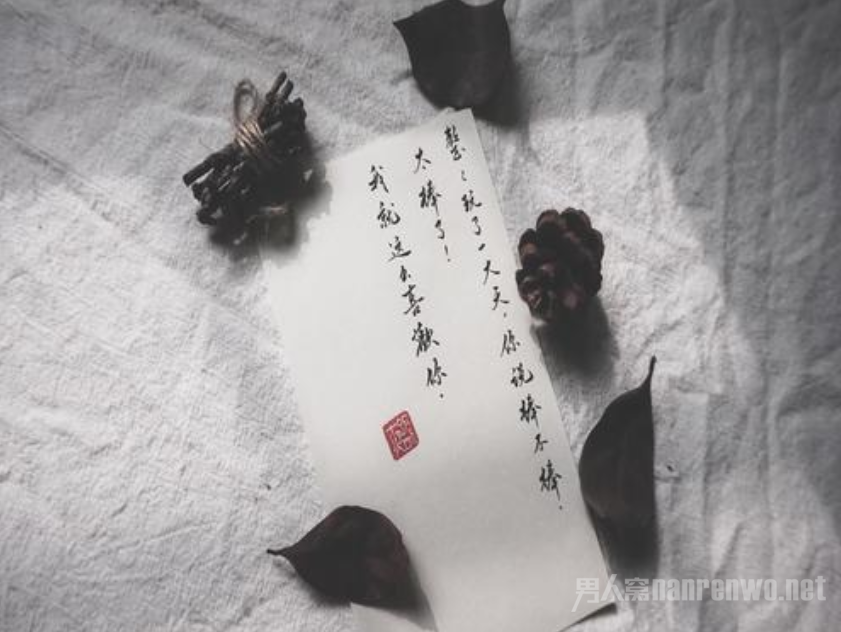 整整玩了一大天，你说棒不棒。
太棒了！
我就这么喜歡你。
男人窝nanrenwo.net